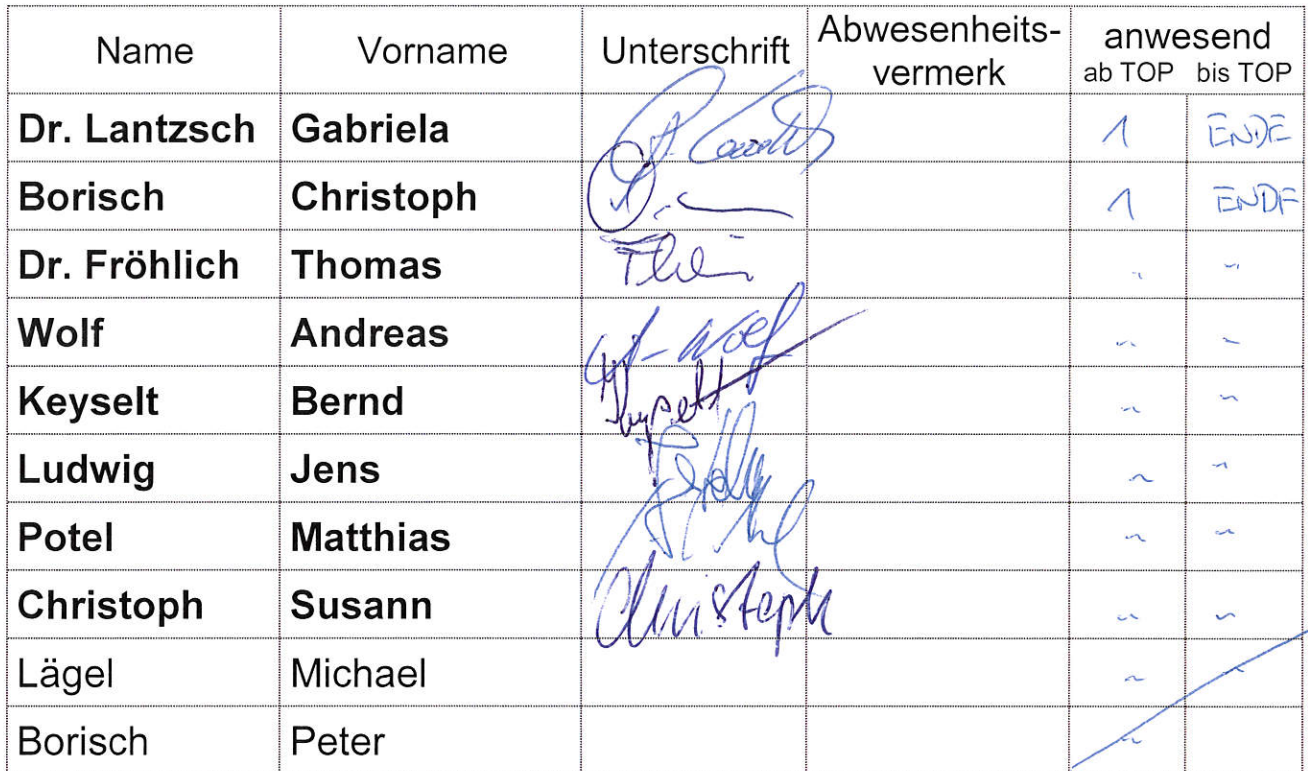 Name Vorname Unterschrift Abwesenheits-vermerk anwesend
ab TOP bis TOP
Dr. Lantzsch Gabriela 1 ENDE
Borisch Christoph 1 ENDE
Dr. Fröhlich Thomas " "
Wolf Andreas Wolf " "
Keyselt Bernd Keyselt " "
Ludwig Jens " "
Potel Matthias " "
Christoph Susann Christoph " "
Lägel Michael " "
Borisch Peter "